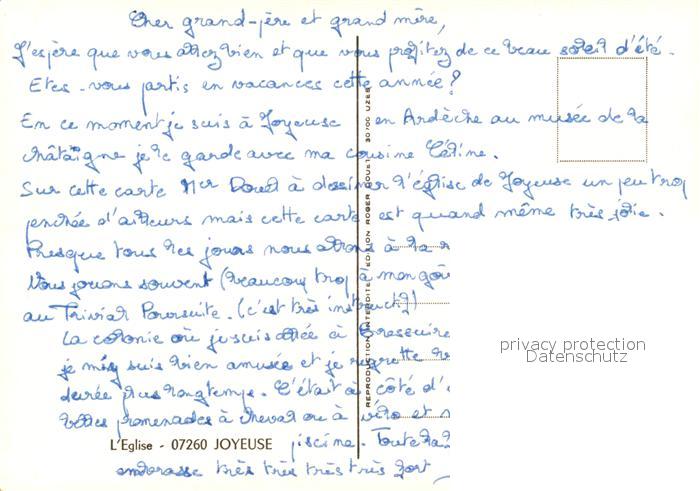 Cher grand-père et grand mère,
J'espère que vous allez bien et que vous profitez de ce beau soleil d'été.
Etes-vous partis en vacances cette année?
En ce moment je suis à Joyeuse en Ardèche au musée de la
châtaigne je le garde avec ma cousine Céline.
Sur cette carte Mer Douet à dessiner l'église de Joyeuse un peu trop
penchée d'ailleurs mais cette carte est quand même très jolie.
Presque tous les jours nous allons à la
Nous jouons souvent (beaucoup trop à mon goût
au Trivial Poursuite. (c'est très instructif)
La colonie où je suis allée à Bressuire
je m'y suis bien amusée et je regrette
durée plus longtemps. C'était à côté d'
belles promenades à cheval ou à vélo et
piscine. Toute la
embrasse très très très très fort
L'Eglise - 07260 JOYEUSE
REPRODUCTION INTERDITE EDITION ROGER DOUET 30700 UZES
privacy protection
Datenschutz